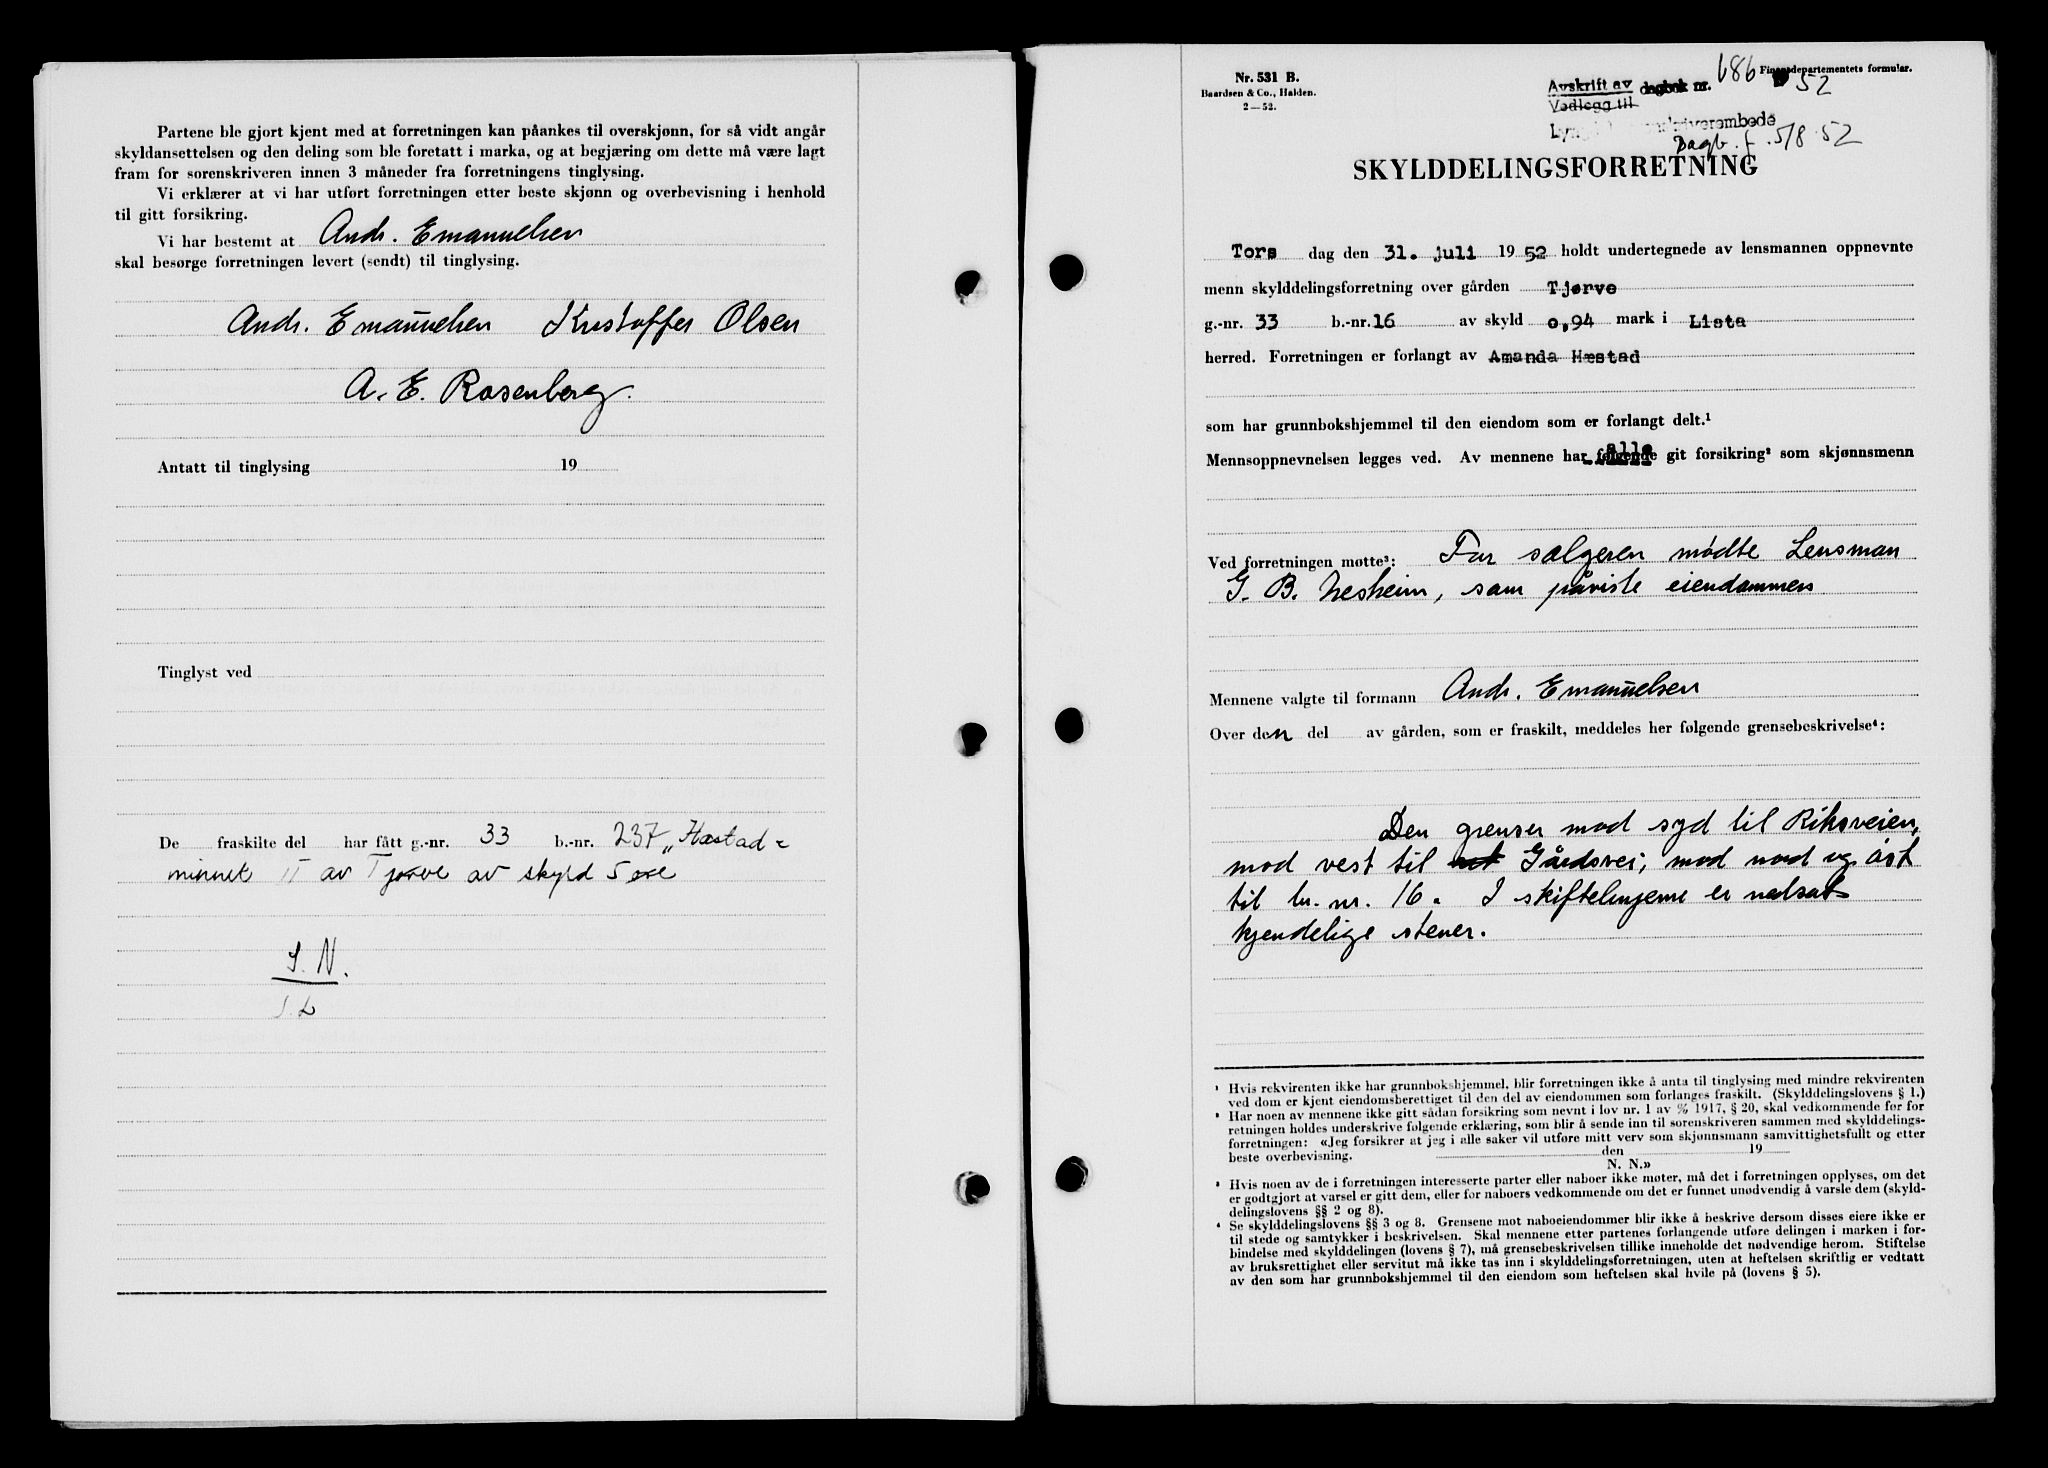 Partene ble gjort kjent med at forretningen kan påankes til overskjønn, for så vidt angår
skyldansettelsen og den deling som ble foretatt i marka, og at begjæring om dette må være lagt
fram for sorenskriveren innen 3 måneder fra forretningens tinglysing.
Vi erklærer at vi har utført forretningen etter beste skjønn og overbevisning i henhold
til gitt forsikring.
Vi har bestemt at Andr. Emanuelsen
skal besørge forretningen levert (sendt) til tinglysing.
Andr. Emanuelsen Kristoffer Olsen
A. E. Rosenberg.
Antatt til tinglysing 19
Tinglyst ved
De fraskilte del har fått g.-nr. 33 b.-nr. 237 „Hæstad-
minnet II av Tjørve av skyld 5 øre
S. N.
S. L
Nr. 531 B.
Baardsen & Co., Halden.
2—52.
Finansdepartementets formular.
Avskrift av dagbok nr. 686 52
Vedlegg til
Dagb. f. 5/8 52
SKYLDDELINGSFORRETNING
Tors dag den 31. juli 1952 holdt undertegnede av lensmannen oppnevnte
menn skylddelingsforretning over gården Tjørve
g.-nr. 33 b.-nr. 16 av skyld 0,94 mark i Lista
herred. Forretningen er forlangt av Amanda Hæstad
som har grunnbokshjemmel til den eiendom som er forlangt delt.¹
alle
Mennsoppnevnelsen legges ved. Av mennene har følgende git forsikring² som skjønnsmenn
Ved forretningen møtte³: For selgeren mødte Lensman
G. B. Nesheim, som påviste eiendommen
Mennene valgte til formann Andr. Emanuelsen
Over den del av gården, som er fraskilt, meddeles her følgende grensebeskrivelse⁴:
Den grenser mod syd til Riksveien,
mod vest til Gårdsvei, mod nord og øst
til br. nr. 16. I skiftelinjerne er nedsat
kjendelige stener.
¹ Hvis rekvirenten ikke har grunnbokshjemmel, blir forretningen ikke å anta til tinglysing med mindre rekvirenten
ved dom er kjent eiendomsberettiget til den del av eiendommen som forlanges fraskilt. (Skylddelingslovens § 1.)
² Har noen av mennene ikke gitt sådan forsikring som nevnt i lov nr. 1 av 1917, § 20, skal vedkommende før for
retningen holdes underskrive følgende erklæring, som blir å sende inn til sorenskriveren sammen med skylddelings-
forretningen: «Jeg forsikrer at jeg i alle saker vil utføre mitt verv som skjønnsmann samvittighetsfullt og etter
beste overbevisning. den 19
N. N.»
³ Hvis noen av de i forretningen interesserte parter eller naboer ikke møter, må det i forretningen opplyses, om det
er godtgjort at varsel er gitt dem, eller for naboers vedkommende om det er funnet unødvendig å varsle dem (skyld-
delingslovens §§ 2 og 8).
⁴ Se skylddelingslovens §§ 3 og 8. Grensene mot naboeiendommer blir ikke å beskrive dersom disses eiere ikke er
til stede og samtykker i beskrivelsen. Skal mennene etter partenes forlangende utføre delingen i marken i for-
bindelse med skylddelingen (lovens § 7), må grensebeskrivelsen tillike inneholde det nødvendige herom. Stiftelse
av bruksrettighet eller servitut må ikke tas inn i skylddelingsforretningen, uten at heftelsen skriftlig er vedtatt
av den som har grunnbokshjemmel til den eiendom som heftelsen skal hvile på (lovens § 5).